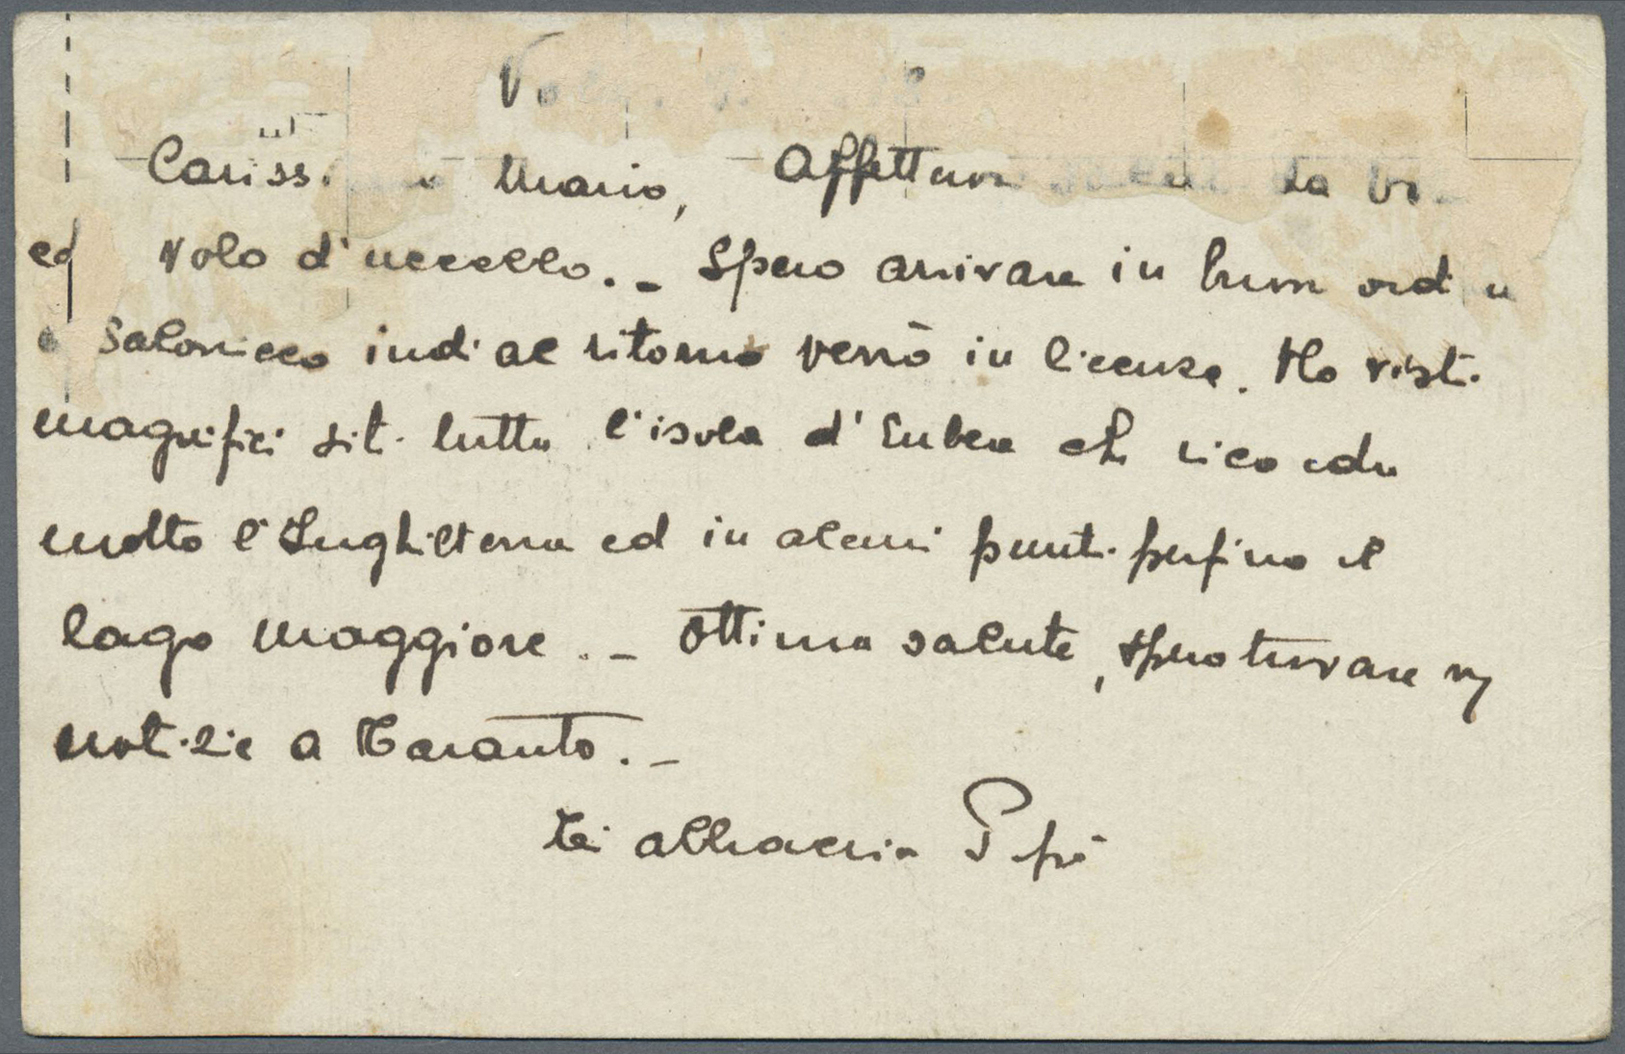 Mario, Affettuosi da
ed volo d'uccello. - Spero arrivare in buon
Salonicco indi al ritorno verrò in licenza. Ho visti
magnifici siti tutta l'isola d'Eubea che ricorda
molto l'Inghilterra ed in alcuni punti perfino il
lago maggiore. - Ottima salute, spero trovare
notizie a Taranto. -
Ti abbraccia